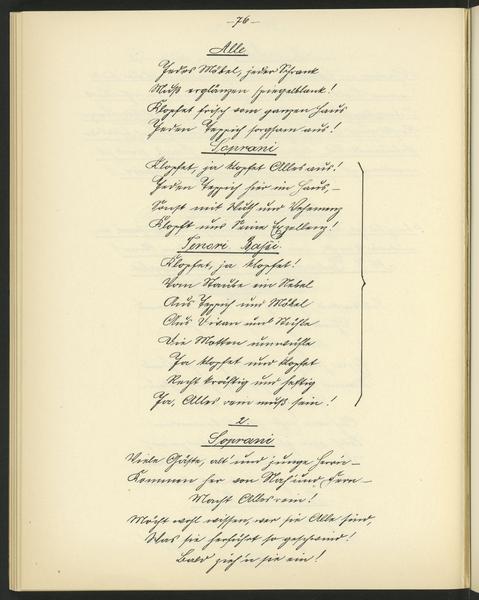 -76-
Alle
Jedes Möbel, jeder Schrank
Muß erglänzen spiegelblank!
Klopfet frisch vom ganzen Haus
Jeden Teppich sorgsam aus!
Soprani
Klopfet, ja klopfet Alles aus!
Jeden Teppich hier im Haus, –
Sonst mit Wuth und Vehemenz
Klopft uns Seine Exzellenz!
Tenori. Bassi.
Klopfet, ja klopfet!
Vom Staube ein Nebel
Aus Teppich und Möbel
Aus Divan und Stühle
Die Motten
Ja klopfet und klopfet
Recht kräftig und heftig
Ja, Alles rein muß sein!
2.
Soprani
Viele Gäste, alt' und junge Herrn –
Kommen her von Nah' und Fern –
Macht Alles rein!
Möcht wohl wissen, wer sie Alle sind,
Was sie herführt so geschwind!
Bald zieh'n sie ein!